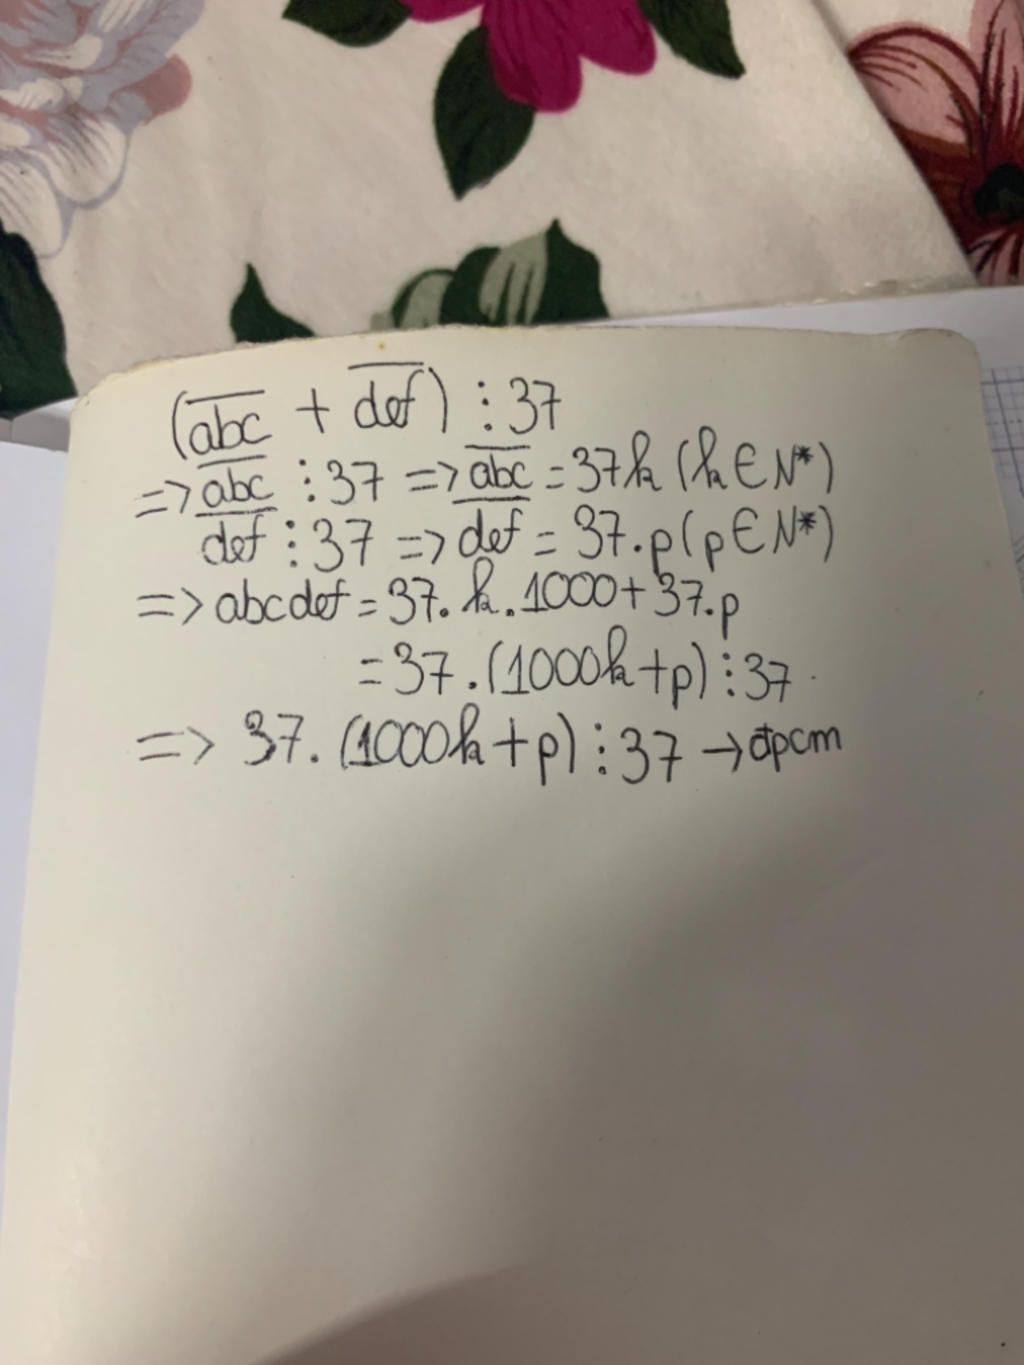 (a̅b̅c̅ + d̅e̅f̅) ⋮ 37
=> a̅b̅c̅ ⋮ 37 => a̅b̅c̅ = 37k (k ∈ N*)
d̅e̅f̅ ⋮ 37 => d̅e̅f̅ = 37.p (p ∈ N*)
=> abcdef = 37. k. 1000 + 37.p
= 37.(1000k+p) ⋮ 37.
=> 37. (1000k+p) ⋮ 37 → đpcm